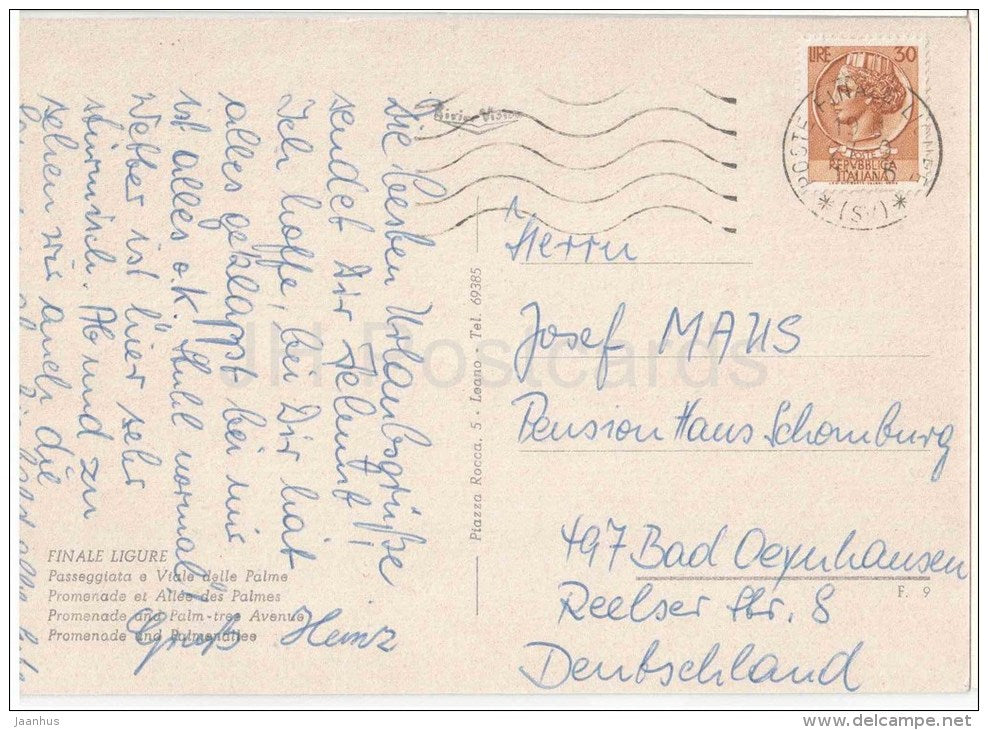 LIRE 30
POSTE
REPVBBLICA
ITALIANA
POSTE FINALE
*(SV)*
Die besten Urlaubsgrüße
sendet Dir Helmut!
Ich hoffe, bei Dir hat
alles geklappt bei mir
ist alles o.k.
Wetter ist hier sehr
stürmisch. Ab und zu
sehen wir auch die
Gruß Heinz
Herrn
Josef MAUS
Pension Haus Schomburg
497 Bad Oeynhausen
Reelser Str. 8
Deutschland
Piazza Rocca, 5 - Loano - Tel. 69385
FINALE LIGURE
Passeggiata e Viale delle Palme
Promenade et Allée des Palmes
Promenade and Palm-tree Avenue
Promenade and Palmenallee
F. 9
JH Postcards
jaanhus
www.delcampe.net